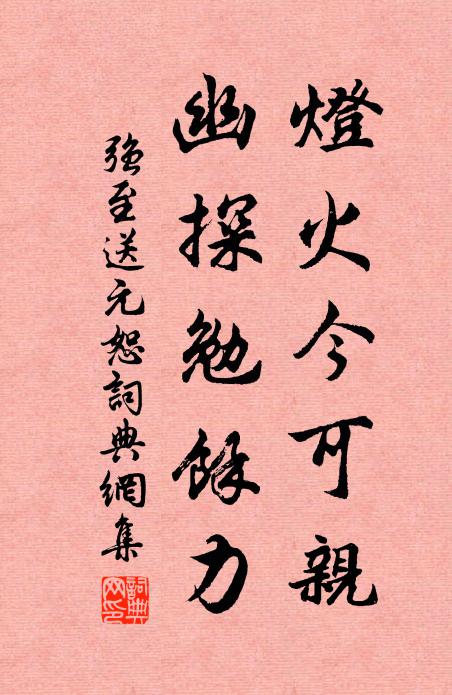 燈火今可親
幽探勉餘力
強至送元恕詞典網集
詞典
網印